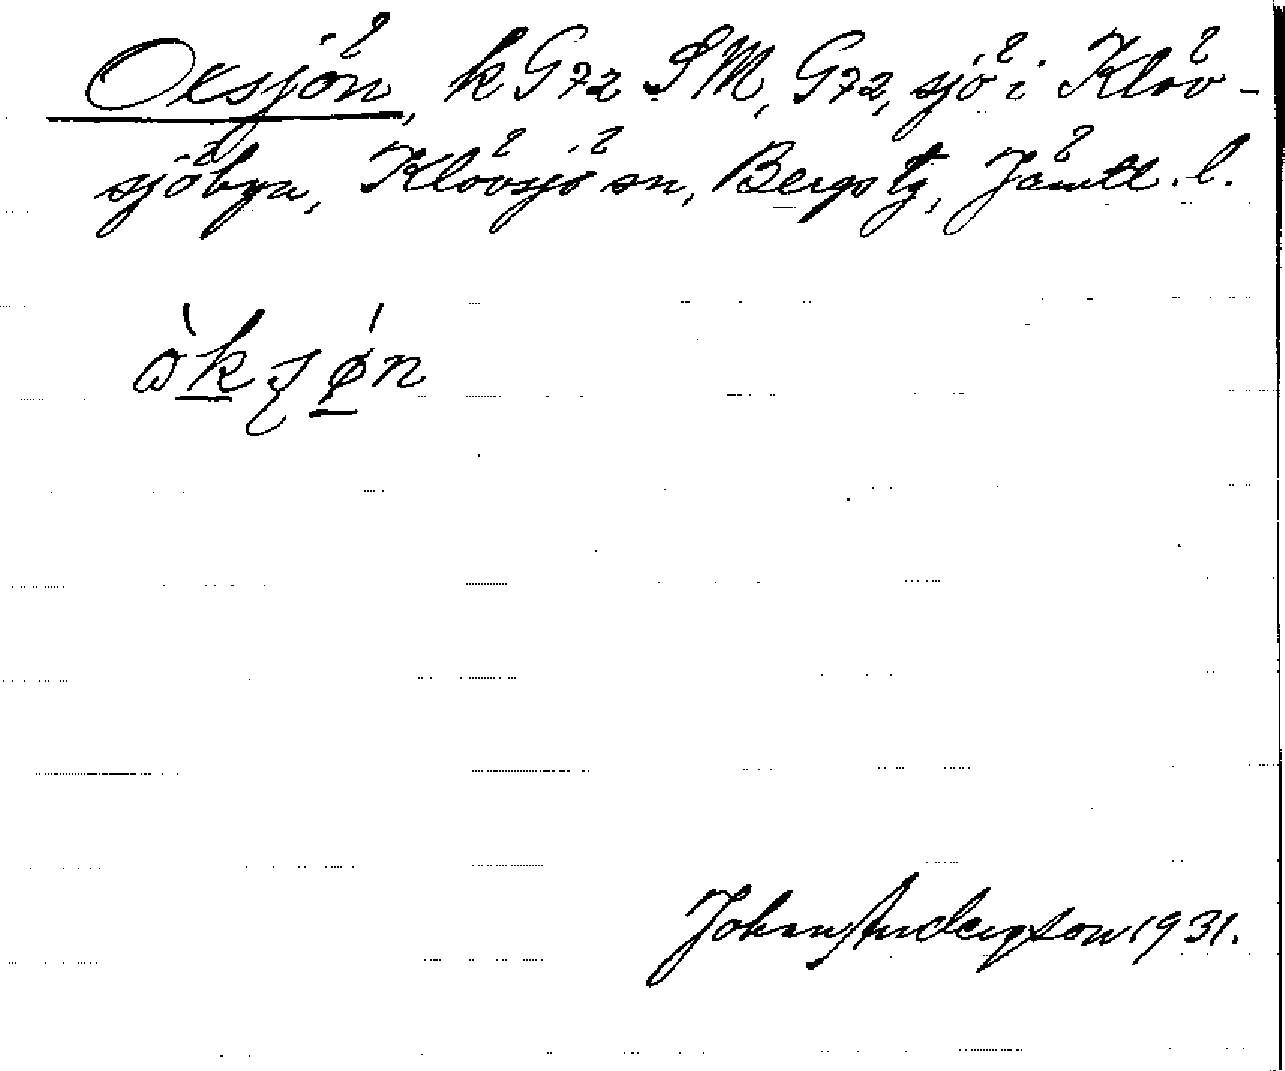 Oxsjön, k G72 SM, G72, sjö i Klöv-
sjöbyn, Klövsjö sn, Bergs tg, Jämtl. l.
Johan Anderzson 1931.